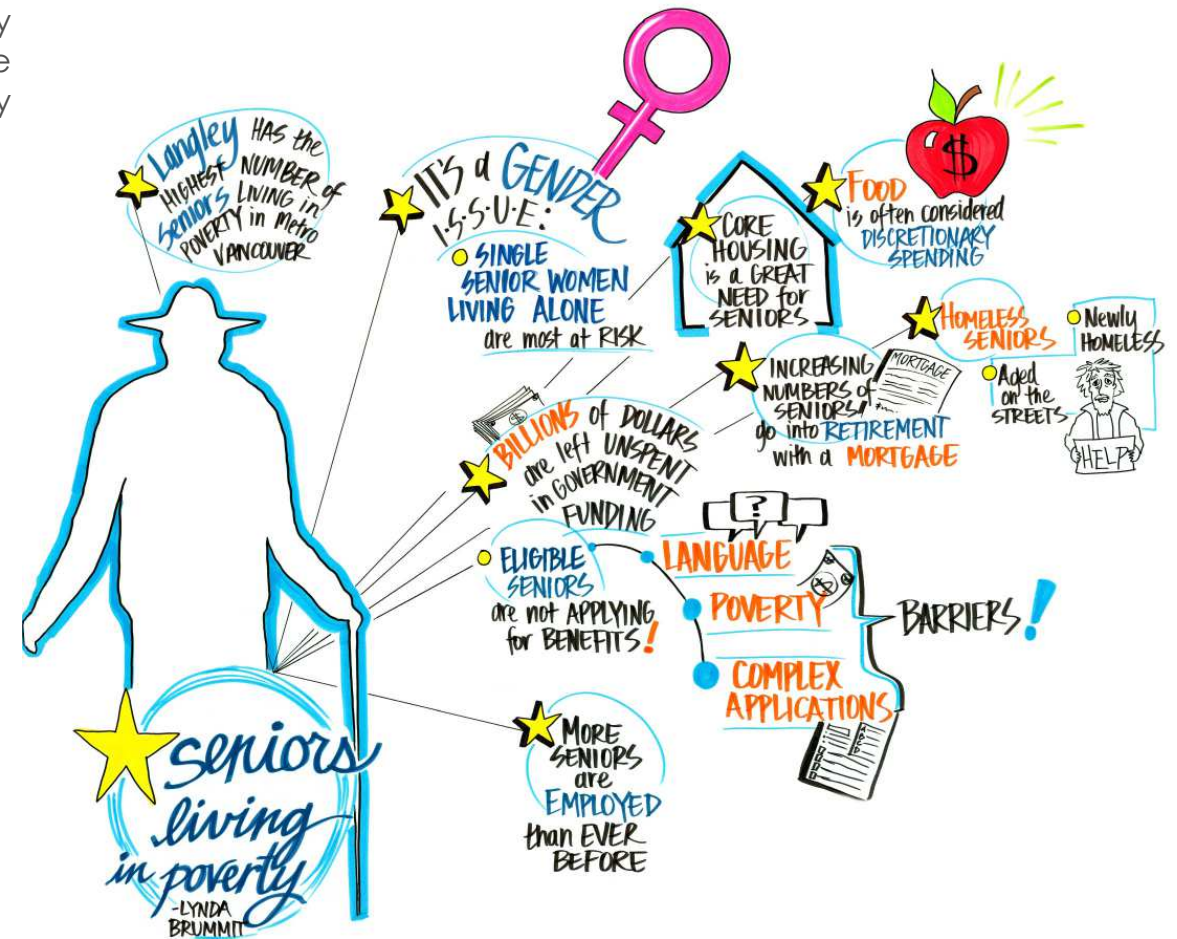 y
e
y
Langley HAS the
HIGHEST NUMBER of
Seniors LIVING in
POVERTY in Metro
VANCOUVER
IT'S a GENDER
I·S·S·U·E:
SINGLE
SENIOR WOMEN
LIVING ALONE
are most at RISK
CORE
HOUSING
is a GREAT
NEED for
SENIORS
$
FOOD
is often considered
DISCRETIONARY
SPENDING
HOMELESS
SENIORS
Newly
HOMELESS
Aged
on the
STREETS
HELP
INCREASING
NUMBERS of
SENIORS
go into RETIREMENT
with a MORTGAGE
MORTGAGE
$
BILLIONS of DOLLARS
are left UNSPENT
in GOVERNMENT
FUNDING
ELIGIBLE
SENIORS
are not APPLYING
for BENEFITS!
?
LANGUAGE
$
POVERTY
COMPLEX
APPLICATIONS
BARRIERS!
MORE
SENIORS
are
EMPLOYED
than EVER
BEFORE
seniors
living
in poverty
-LYNDA
BRUMMIT